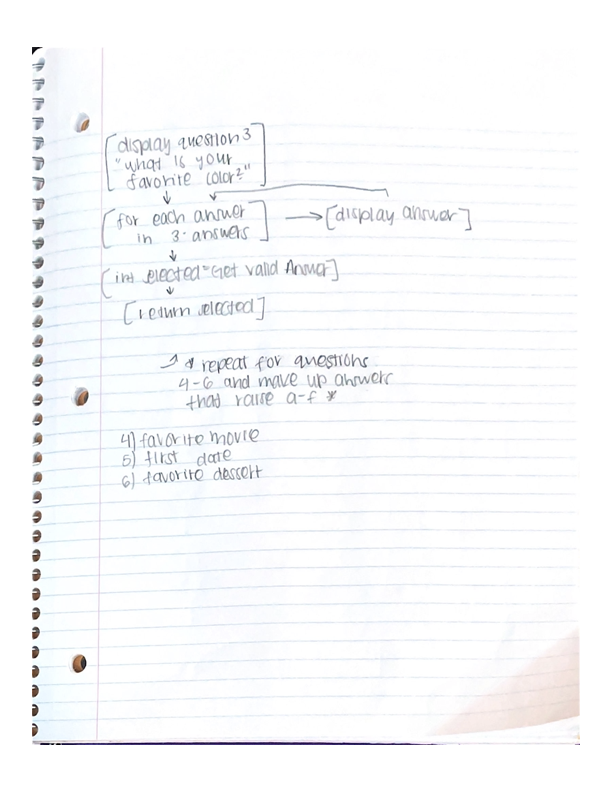 display question 3
"what is your
favorite color?"
for each answer
in 3 answers
display answer
int selected = Get valid Answer
return selected
* repeat for questions
4-6 and make up answers
that raise a-f *
4) favorite movie
5) first date
6) favorite dessert